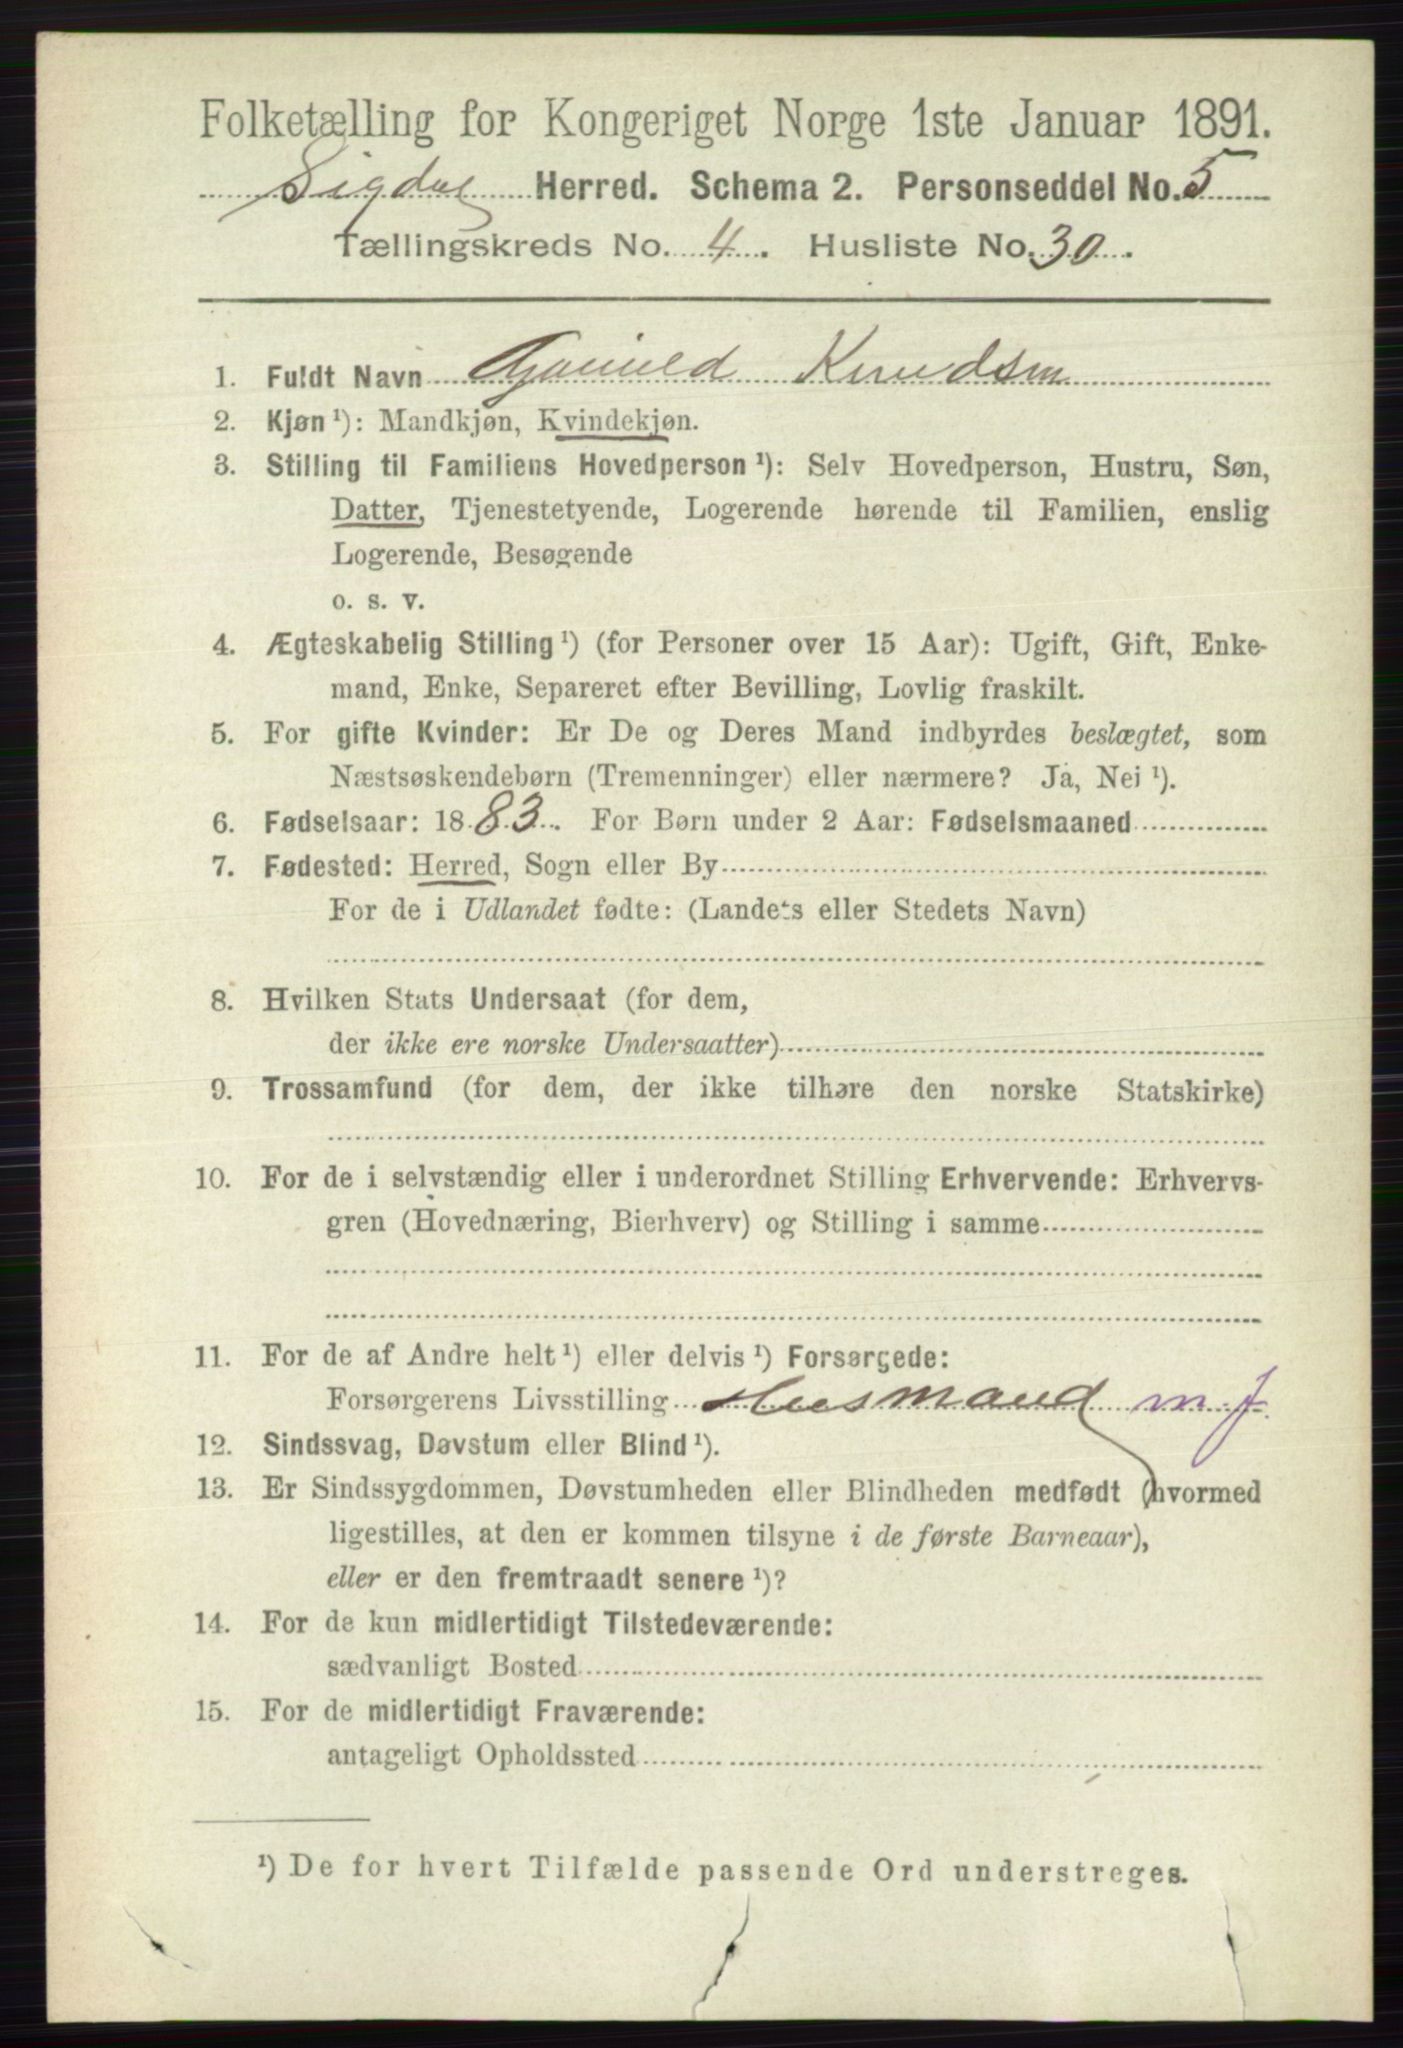 Folketælling for Kongeriget Norge 1ste Januar 1891.
Sigdal Herred. Schema 2. Personseddel No. 5
Tællingskreds No. 4. Husliste No. 30.
1. Fuldt Navn Knudsen
2. Kjøn ¹): Mandkjøn, Kvindekjøn.
3. Stilling til Familiens Hovedperson ¹): Selv Hovedperson, Hustru, Søn,
Datter, Tjenestetyende, Logerende hørende til Familien, enslig
Logerende, Besøgende
o. s. v.
4. Ægteskabelig Stilling ¹) (for Personer over 15 Aar): Ugift, Gift, Enke-
mand, Enke, Separeret efter Bevilling, Lovlig fraskilt.
5. For gifte Kvinder: Er De og Deres Mand indbyrdes beslægtet, som
Næstsøskendebørn (Tremenninger) eller nærmere? Ja, Nei ¹).
6. Fødselsaar: 1883. For Børn under 2 Aar: Fødselsmaaned
7. Fødested: Herred, Sogn eller By
For de i Udlandet fødte: (Landets eller Stedets Navn)
8. Hvilken Stats Undersaat (for dem,
der ikke ere norske Undersaatter)
9. Trossamfund (for dem, der ikke tilhøre den norske Statskirke)
10. For de i selvstændig eller i underordnet Stilling Erhvervende: Erhvervs-
gren (Hovednæring, Bierhverv) og Stilling i samme
11. For de af Andre helt ¹) eller delvis ¹) Forsørgede:
Forsørgerens Livsstilling Husmand m. J.
12. Sindssvag, Døvstum eller Blind ¹).
13. Er Sindssygdommen, Døvstumheden eller Blindheden medfødt (hvormed
ligestilles, at den er kommen tilsyne i de første Barneaar),
eller er den fremtraadt senere ¹)?
14. For de kun midlertidigt Tilstedeværende:
sædvanligt Bosted
15. For de midlertidigt Fraværende:
antageligt Opholdssted
¹) De for hvert Tilfælde passende Ord understreges.